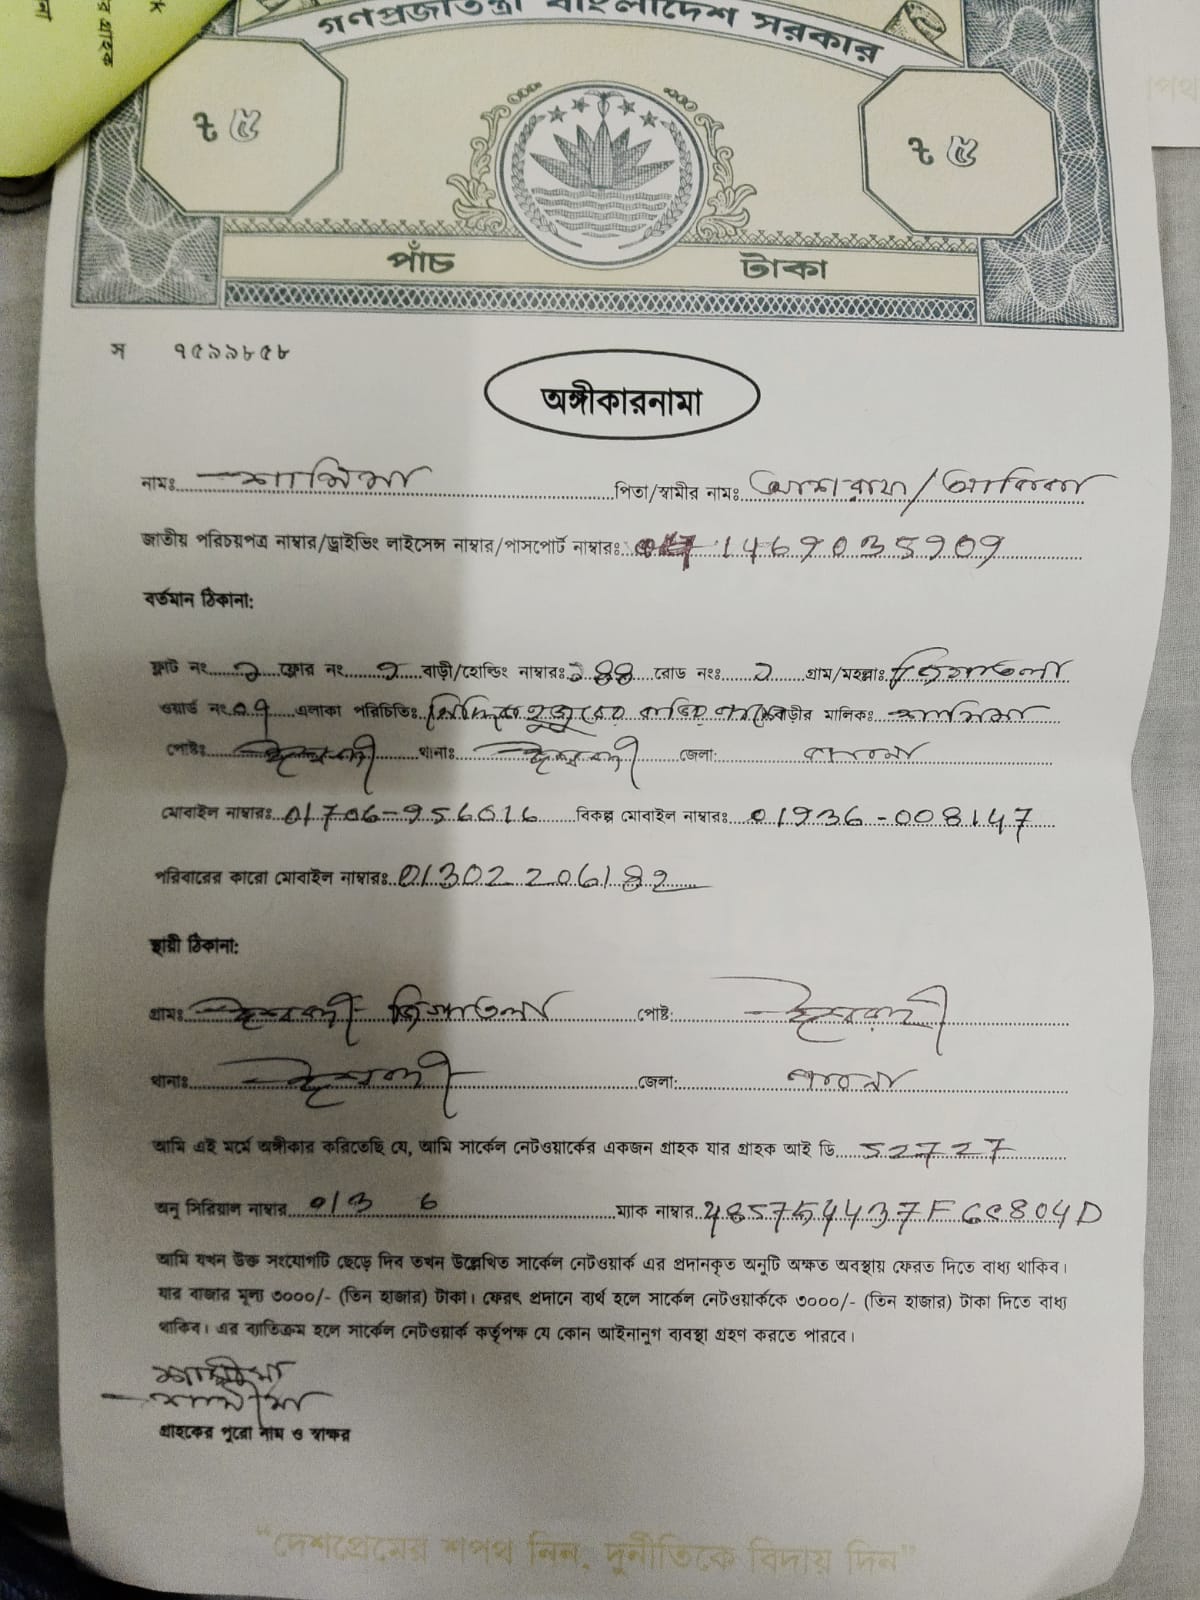 গণপ্রজাতন্ত্রী বাংলাদেশ সরকার
৳ ৫ ৳ ৫
পাঁচ টাকা
স ৭৫৯৯৮৫৮
অঙ্গীকারনামা
নামঃ শামিমা পিতা/স্বামীর নামঃ
জাতীয় পরিচয়পত্র নাম্বার/ড্রাইভিং লাইসেন্স নাম্বার/পাসপোর্ট নাম্বারঃ
বর্তমান ঠিকানা:
ফ্লাট নং ফ্লোর নং বাড়ী/হোল্ডিং নাম্বারঃ রোড নংঃ গ্রাম/মহল্লাঃ
ওয়ার্ড নং এলাকা পরিচিতিঃ বাড়ীর মালিকঃ শামিমা
পোষ্টঃ ঈশ্বরদী থানাঃ ঈশ্বরদী জেলা: পাবনা
মোবাইল নাম্বারঃ 01706-956016 বিকল্প মোবাইল নাম্বারঃ 01936-008147
পরিবারের কারো মোবাইল নাম্বারঃ
স্থায়ী ঠিকানা:
গ্রামঃ ঈশ্বরদী পোষ্ট: ঈশ্বরদী
থানাঃ ঈশ্বরদী জেলা: পাবনা
আমি এই মর্মে অঙ্গীকার করিতেছি যে, আমি সার্কেল নেটওয়ার্কের একজন গ্রাহক যার গ্রাহক আই ডি 52727
অনু সিরিয়াল নাম্বার 013 6 ম্যাক নাম্বার
আমি যখন উক্ত সংযোগটি ছেড়ে দিব তখন উল্লেখিত সার্কেল নেটওয়ার্ক এর প্রদানকৃত অনুটি অক্ষত অবস্থায় ফেরত দিতে বাধ্য থাকিব।
যার বাজার মূল্য ৩০০০/- (তিন হাজার) টাকা। ফেরৎ প্রদানে ব্যর্থ হলে সার্কেল নেটওয়ার্ককে ৩০০০/- (তিন হাজার) টাকা দিতে বাধ্য
থাকিব। এর ব্যতিক্রম হলে সার্কেল নেটওয়ার্ক কর্তৃপক্ষ যে কোন আইনানুগ ব্যবস্থা গ্রহণ করতে পারবে।
শামীমা
শামীমা
গ্রাহকের পুরো নাম ও স্বাক্ষর
“দেশপ্রেমের শপথ নিন, দুর্নীতিকে বিদায় দিন”